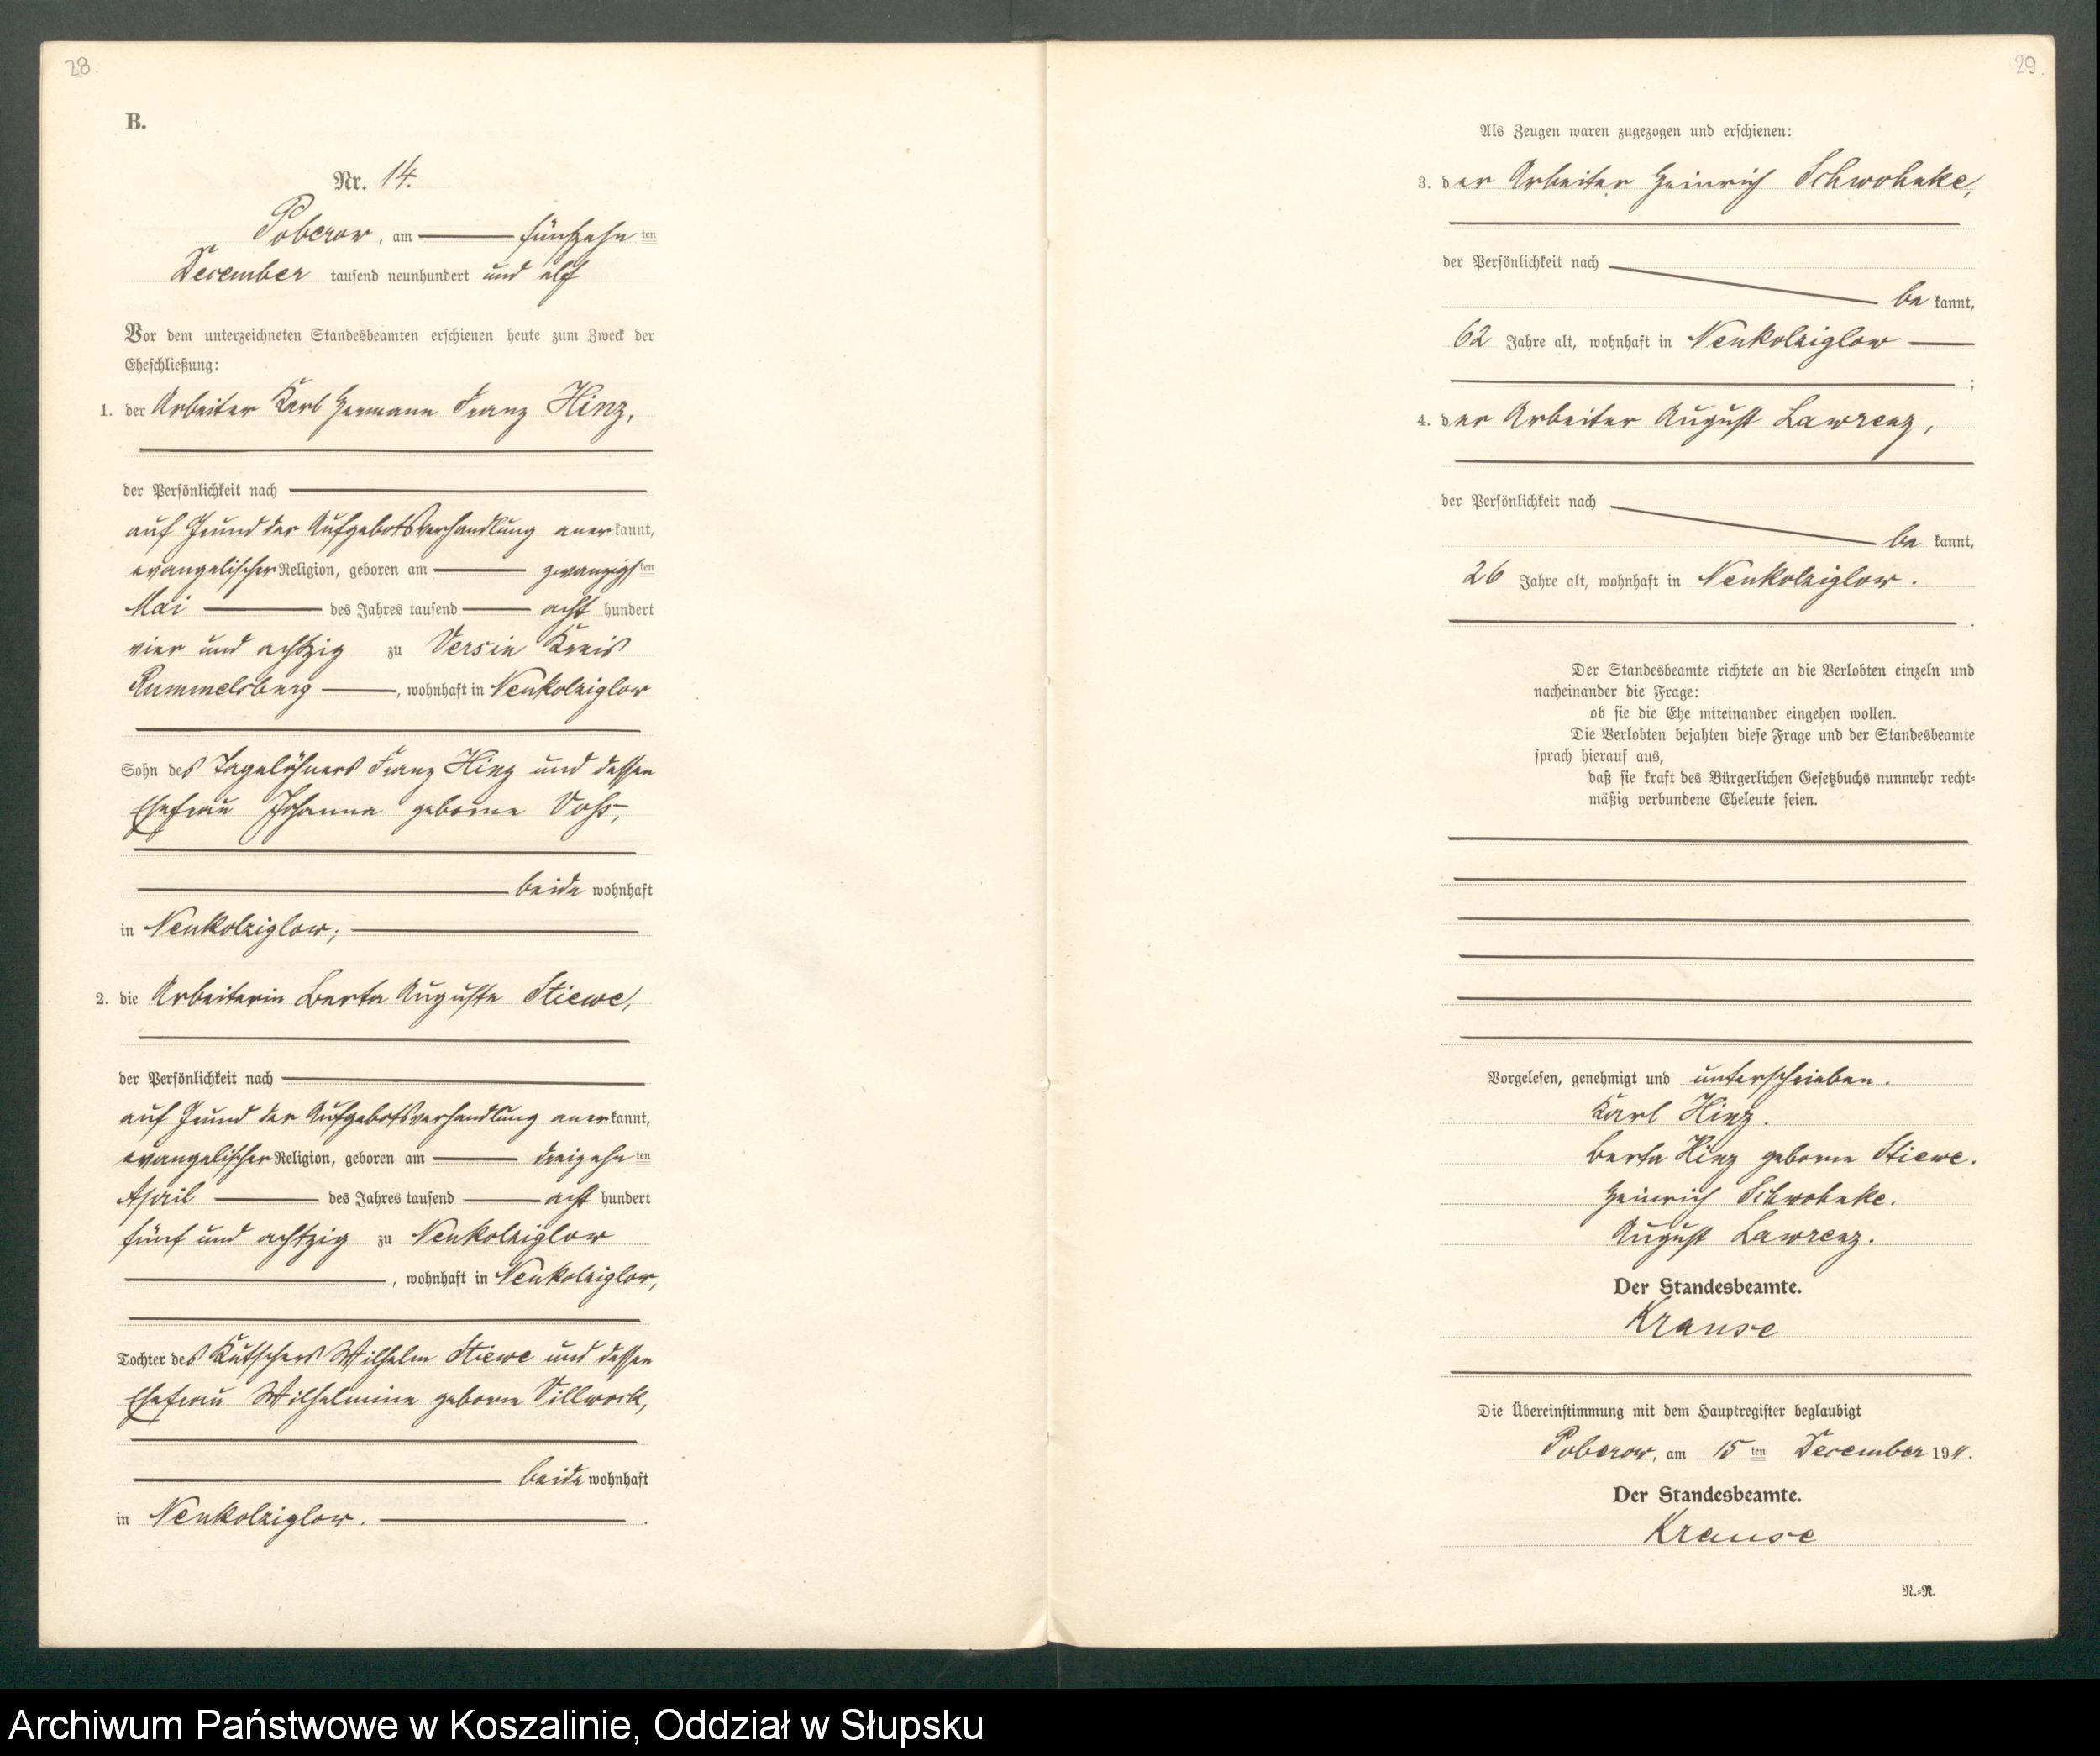 28.
B.
Nr. 14.
Poberow, am fünfzehn ten
December tausend neunhundert und elf
Vor dem unterzeichneten Standesbeamten erschienen heute zum Zweck der
Eheschließung:
1. der Arbeiter Karl Hermann Franz Hinz,
der Persönlichkeit nach
auf Grund der Aufgebotsverhandlung anerkannt,
evangelischer Religion, geboren am zwanzigsten
Mai des Jahres tausend acht hundert
vier und achtzig zu Versin Kreis
Rummelsburg, wohnhaft in Neukolziglow
Sohn des Tagelöhners Franz Hinz und dessen
Ehefrau Johanna geborne Voß,
beide wohnhaft
in Neukolziglow;
2. die Arbeiterin Berta Auguste Stiewe,
der Persönlichkeit nach
auf Grund der Aufgebotsverhandlung anerkannt,
evangelischer Religion, geboren am dreizehn ten
April des Jahres tausend acht hundert
fünf und achtzig zu Neukolziglow
, wohnhaft in Neukolziglow,
Tochter des Kutschers Wilhelm Stiewe und dessen
Ehefrau Wilhelmine geborne Villwock,
beide wohnhaft
in Neukolziglow.
29.
Als Zeugen waren zugezogen und erschienen:
3. der Arbeiter Heinrich Schwohnke,
der Persönlichkeit nach
be kannt,
62 Jahre alt, wohnhaft in Neukolziglow
;
4. der Arbeiter August Lawrenz,
der Persönlichkeit nach
be kannt,
26 Jahre alt, wohnhaft in Neukolziglow.
Der Standesbeamte richtete an die Verlobten einzeln und
nacheinander die Frage:
ob sie die Ehe miteinander eingehen wollen.
Die Verlobten bejahten diese Frage und der Standesbeamte
sprach hierauf aus,
daß sie kraft des Bürgerlichen Gesetzbuchs nunmehr recht-
mäßig verbundene Eheleute seien.
Vorgelesen, genehmigt und unterschrieben.
Karl Hinz.
Berta Hinz geborne Stiewe.
Heinrich Schwohnke.
August Lawrenz.
Der Standesbeamte.
Krause
Die Übereinstimmung mit dem Hauptregister beglaubigt
Poberow, am 15 ten December 1911.
Der Standesbeamte.
Krause
N.-R.
Archiwum Państwowe w Koszalinie, Oddział w Słupsku